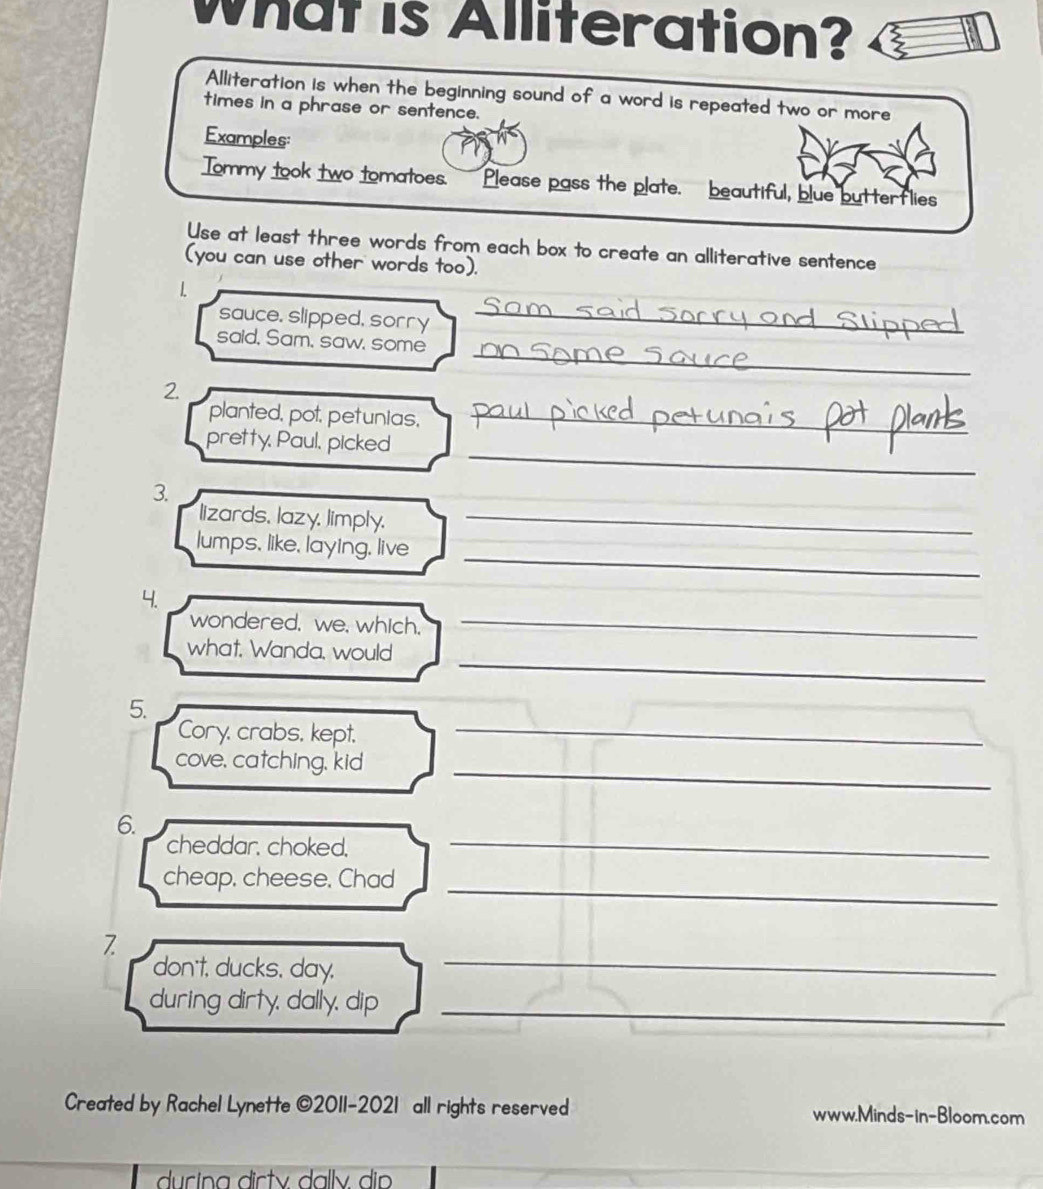 What is Alliteration?
Alliteration is when the beginning sound of a word is repeated two or more
times in a phrase or sentence.
Examples:
Tommy took two tomatoes. Please pass the plate. beautiful, blue butterflies
Use at least three words from each box to create an alliterative sentence
(you can use other words too).
1.
sauce, slipped, sorry
said, Sam, saw, some
Sam said sorry and slipped
on some sauce
2.
planted, pot, petunias,
pretty, Paul, picked
paul picked petunais pot plants
3.
lizards, lazy, limply,
lumps, like, laying, live
4.
wondered, we, which,
what, Wanda, would
5.
Cory, crabs, kept,
cove, catching, kid
6.
cheddar, choked,
cheap, cheese, Chad
7.
don't, ducks, day,
during dirty, dally, dip
Created by Rachel Lynette ©2011-2021 all rights reserved
www.Minds-in-Bloom.com
during dirty, dally, dip